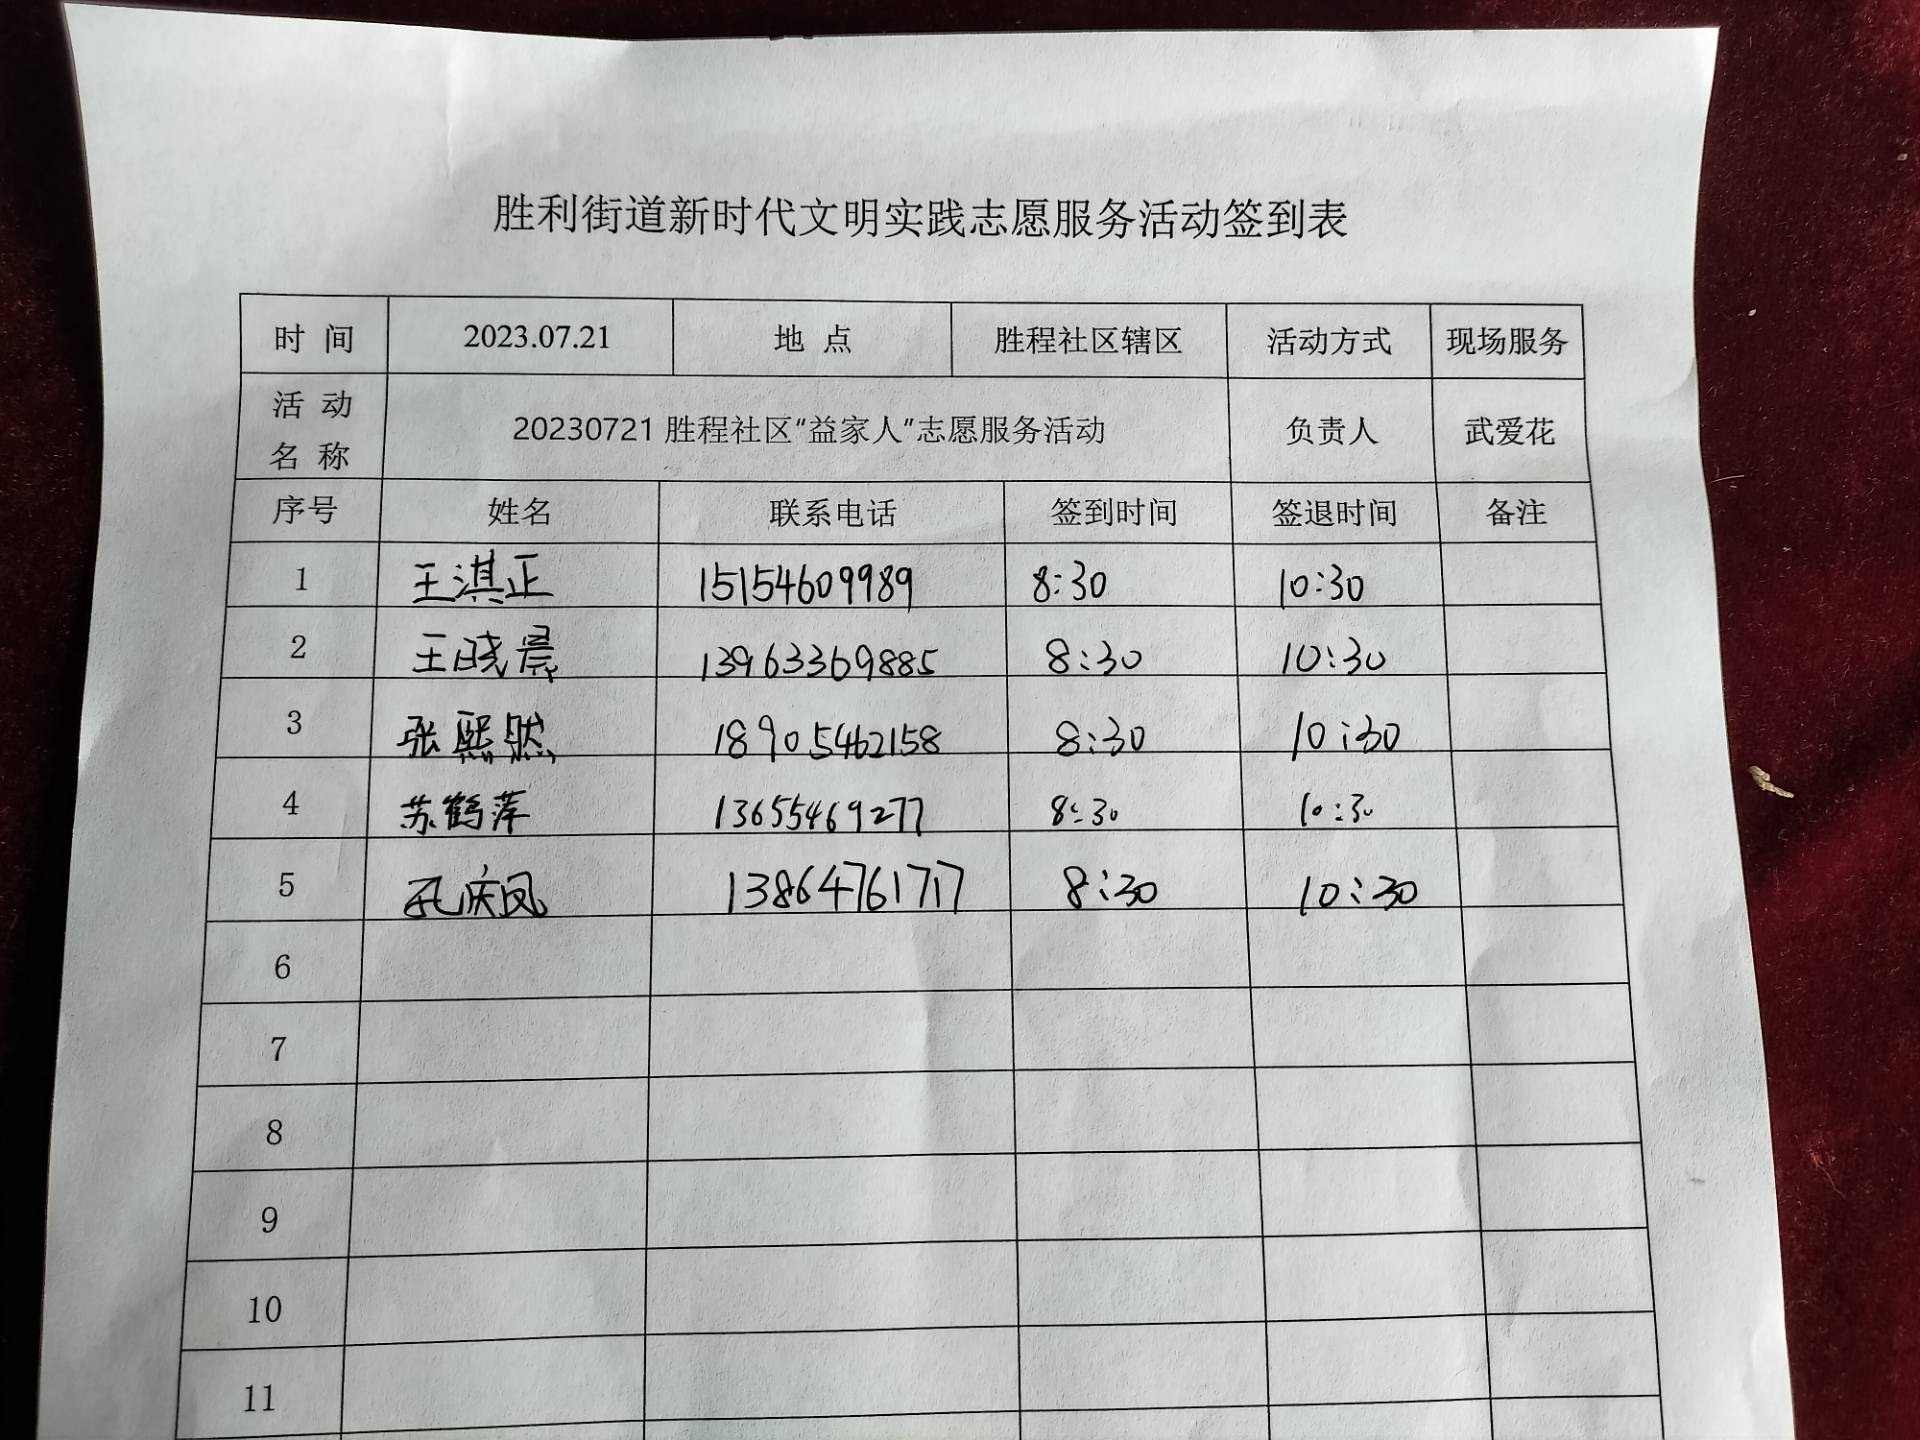 胜利街道新时代文明实践志愿服务活动签到表
时 间 2023.07.21 地 点 胜程社区辖区 活动方式 现场服务
活 动 名 称 20230721胜程社区“益家人”志愿服务活动 负责人 武爱花
序号 姓名 联系电话 签到时间 签退时间 备注
1 王淇正 15154609989 8:30 10:30
2 王晓晨 13963369885 8:30 10:30
3 张熙然 18905462158 8:30 10:30
4 苏鹤萍 13655469277 8:30 10:30
5 孔庆凤 13864761717 8:30 10:30
6
7
8
9
10
11